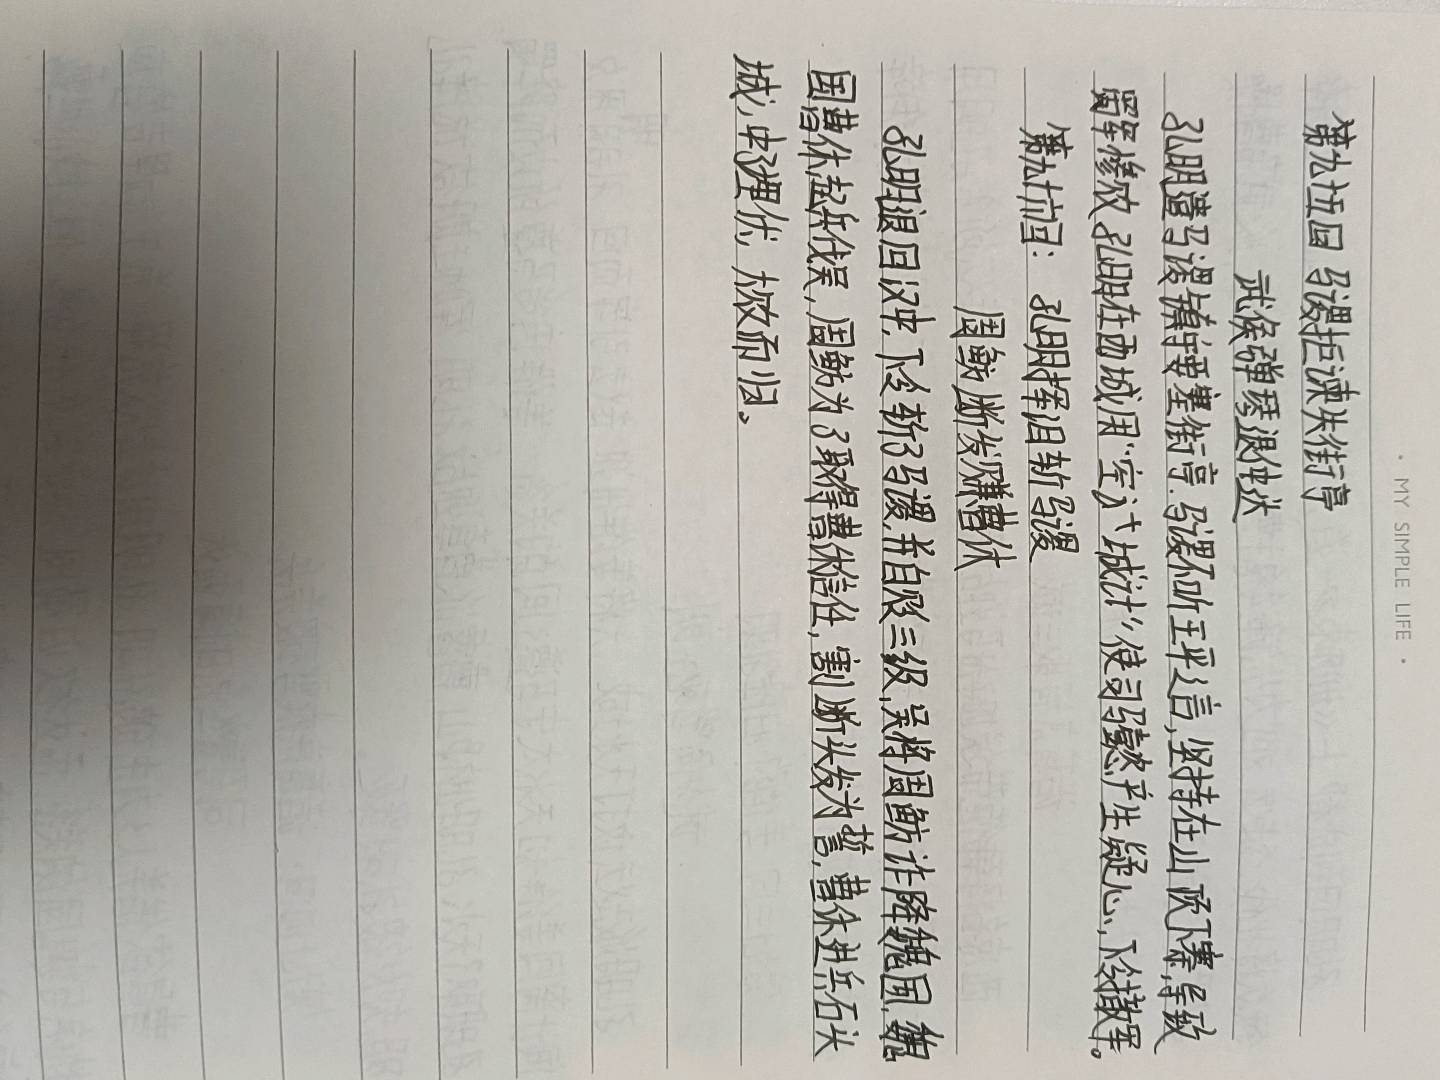 · MY SIMPLE LIFE ·
第九十五回 马谡拒谏失街亭
武侯弹琴退仲达
孔明遣马谡镇守要塞街亭.马谡不听王平之言,坚持在山顶下寨,导致
蜀军惨败.孔明在西城用“空城计”使司马懿产生疑心,下令撤军。
第九十六回: 孔明挥泪斩马谡
周鲂断发赚曹休
孔明退回汉中,下令斩了马谡,并自贬三级,吴将周鲂诈降魏国,魏
国曹休起兵伐吴,周鲂为了取得曹休信任,割断头发为誓,曹休进兵石头
城,中埋伏,大败而归。